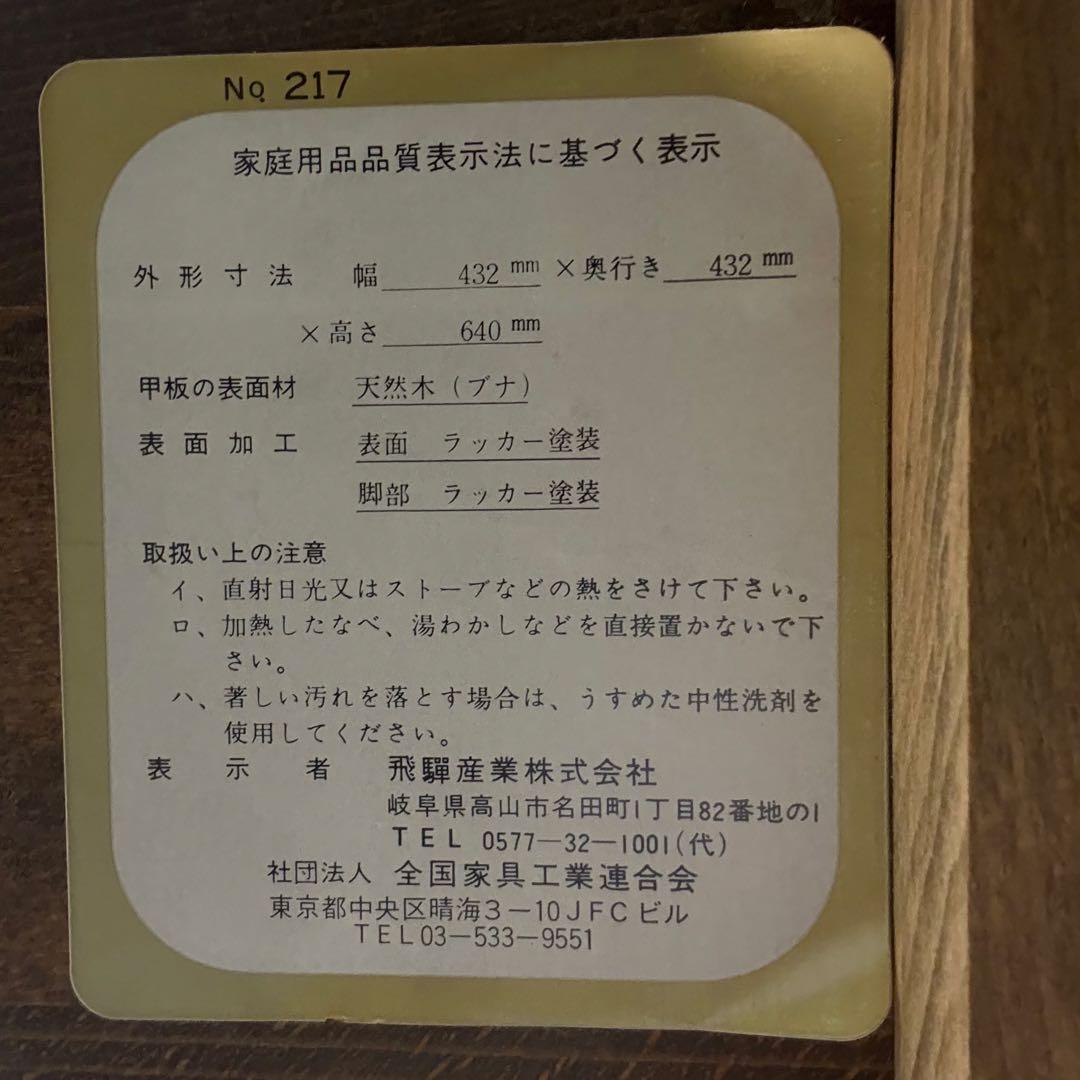 No. 217
家庭用品品質表示法に基づく表示
外形寸法 幅 432 mm ×奥行き 432 mm
×高さ 640 mm
甲板の表面材 天然木(ブナ)
表面加工 表面 ラッカー塗装
脚部 ラッカー塗装
取扱い上の注意
イ、直射日光又はストーブなどの熱をさけて下さい。
ロ、加熱したなべ、湯わかしなどを直接置かないで下
さい。
ハ、著しい汚れを落とす場合は、うすめた中性洗剤を
使用してください。
表示者 飛驒産業株式会社
岐阜県高山市名田町1丁目82番地の1
TEL 0577-32-1001(代)
社団法人 全国家具工業連合会
東京都中央区晴海3-10JFCビル
TEL03-533-9551